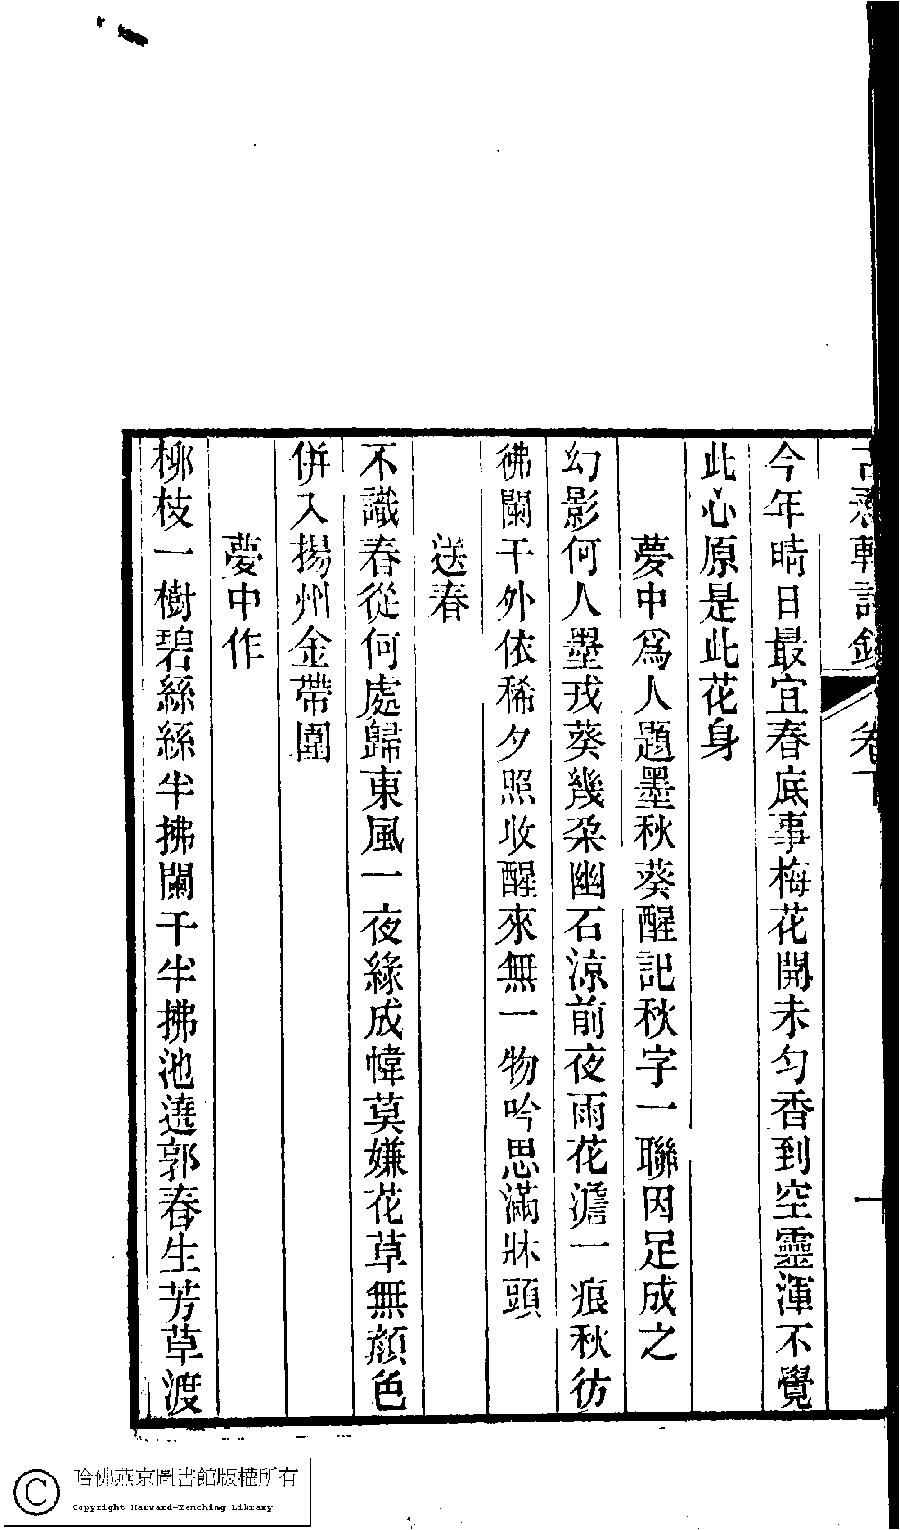 今年晴日最宜春底事梅花開未勻香到空靈渾不覺
此心原是此花身
夢中爲人題墨秋葵醒記秋字一聯因足成之
幻影何人墨戎葵幾朶幽石涼前夜雨花澹一痕秋彷
彿闌干外依稀夕照收醒來無一物吟思滿牀頭
送春
不識春從何處歸東風一夜綠成幃莫嫌花草無顏色
併入揚州金帶圍
夢中作
柳枝一樹碧絲絲半拂闌干半拂池遶郭春生芳草渡
哈佛燕京圖書館版權所有
Copyright Harvard-Yenching Library